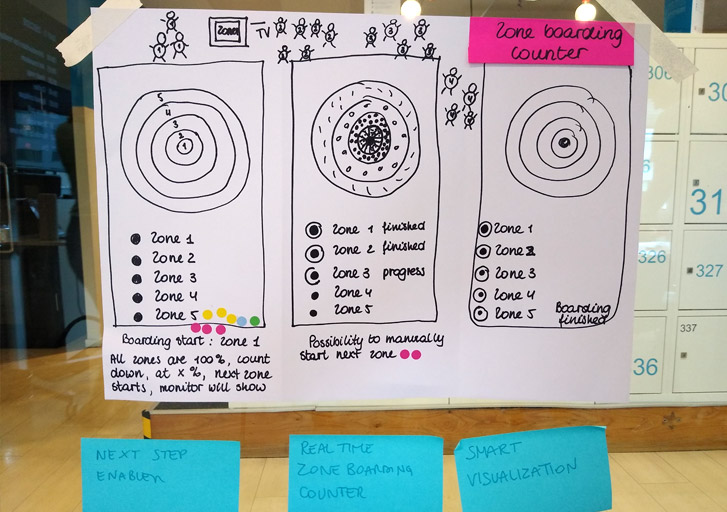 Zone boarding
counter
ZONES
TV
5
4
3
2
1
Zone 1
Zone 2
Zone 3
Zone 4
Zone 5
Boarding start: Zone 1
All zones are 100%, count
down, at x %, next zone
starts, monitor will show
Zone 1 finished
Zone 2 finished
Zone 3 progress
Zone 4
Zone 5
Possibility to manually
start next zone
Zone 1
Zone 2
Zone 3
Zone 4
Zone 5
Boarding
finished
NEXT STEP
ENABLER
REAL TIME
ZONE BOARDING
COUNTER
SMART
VISUALIZATION
306
30
31
326
327
36
337